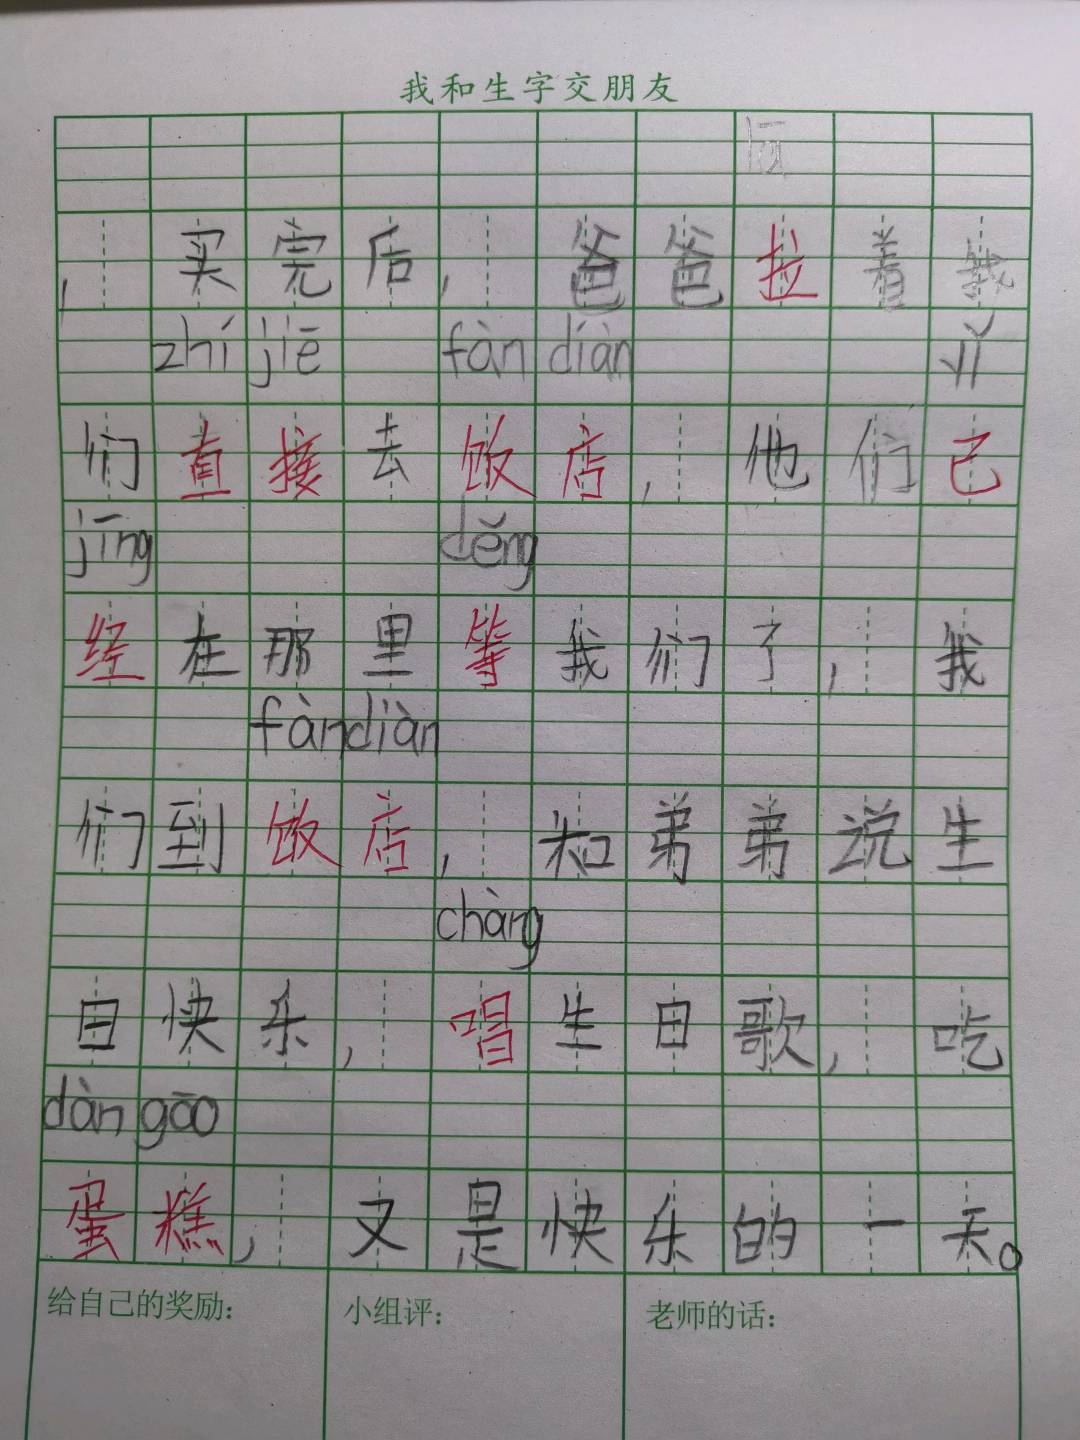 我和生字交朋友
lā
，买完后，爸爸拉着我
zhí jiē fàn diàn yǐ
们直接去饭店，他们已
jīng děng
经在那里等我们了，我
fàn diàn
们到饭店，和弟弟说生
chàng
日快乐，唱生日歌，吃
dàn gāo
蛋糕，又是快乐的一天。
给自己的奖励： 小组评： 老师的话：